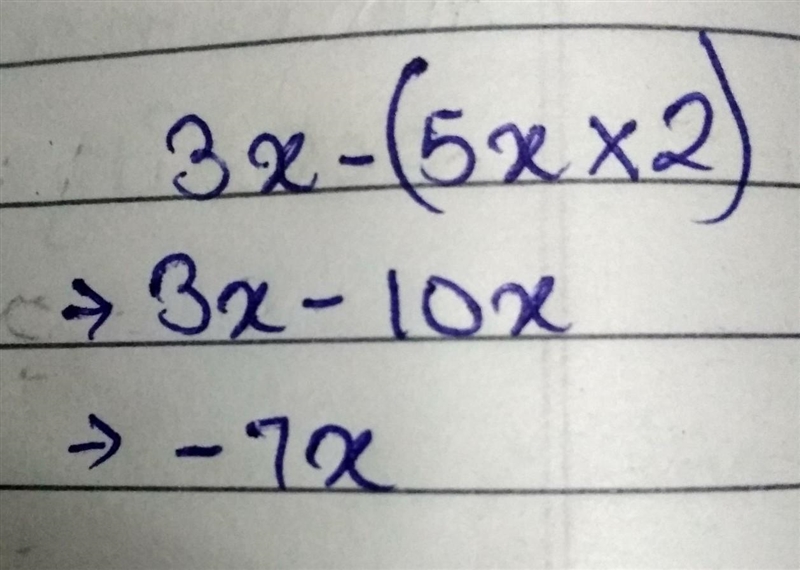 3x - (5x × 2)
→ 3x - 10x
→ -7x